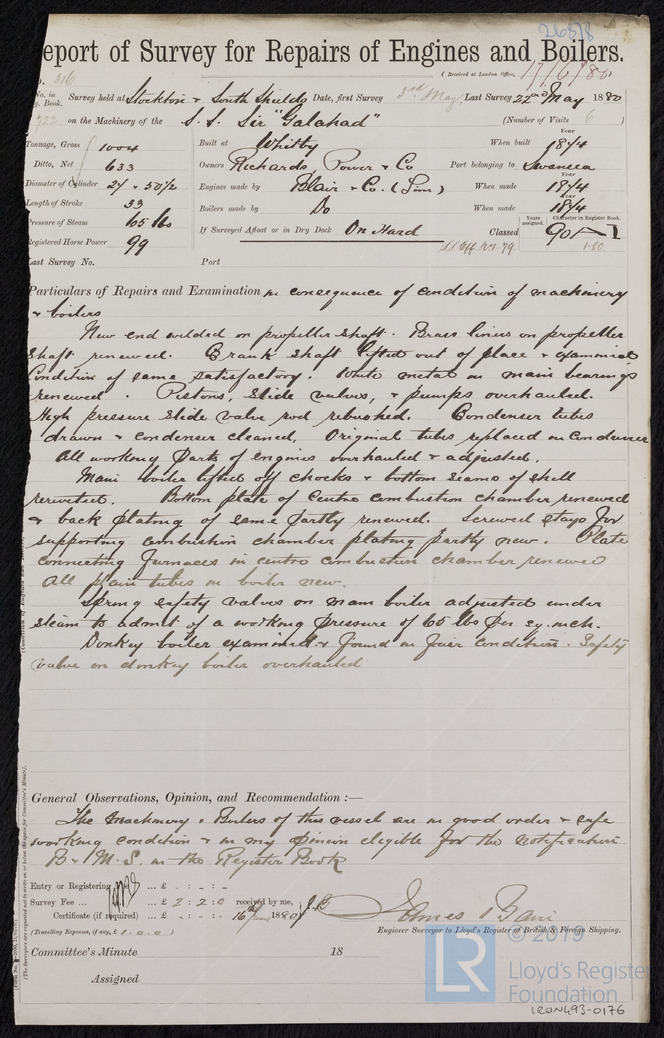 26878
eport of Survey for Repairs of Engines and Boilers.
(Received at London Office, 17/6/80
o. 316
No. in g. Book. Survey held at Stockton & South Shields Date, first Survey 3rd May Last Survey 22nd May 1880
722 on the Machinery of the S. S. Sir "Galahad" (Number of Visits 6 )
Tonnage, Gross 1004 Built at Whitby When built Year 1874
Ditto, Net 633 Owners Richards Power & Co Port belonging to Swansea
Diameter of Cylinder 27 & 50 1/2 Engines made by Blair & Co. (Lim) When made Year 1874
Length of Stroke 33 Boilers made by Do When made Year 1874
Pressure of Steam 65 lbs If Surveyed Afloat or in Dry Dock On Hard Classed Years assigned. Character in Register Book. 90 A 1
Registered Horse Power 99 1.80
ast Survey No. Port
Particulars of Repairs and Examination in consequence of condition of machinery
& boilers
New end welded on propeller shaft. Brass liners on propeller
shaft renewed. Crank shaft lifted out of place & examined
Condition of same satisfactory. White metal in main bearings
renewed. Pistons, slide valves, & pumps overhauled.
High pressure slide valve rod rebushed. Condenser tubes
drawn & condenser cleaned. Original tubes replaced in condenser
All working parts of engines overhauled & adjusted.
Main boiler lifted off chocks & bottom seams of shell
rerivetted. Bottom plate of centre combustion chamber renewed
& back plating of same partly renewed. Screwed stays for
supporting combustion chamber plating partly new. Plate
connecting furnaces in centre combustion chamber renewed
All plain tubes in boiler new.
Spring safety valves on main boiler adjusted under
steam to admit of a working pressure of 65 lbs per sq. inch.
Donkey boiler examined & found in fair condition. Safety
valve on donkey boiler overhauled
General Observations, Opinion, and Recommendation :—
The Machinery & Boilers of this vessel are in good order & safe
working condition & in my opinion eligible for the notification
B & M. S. in the Register Book
Entry or Registering ... £ - : - : -
Survey Fee ... ... £ 2 : 2 : 0 received by me,
Certificate (if required) ... £ - : - : - 16th June 1880
(Travelling Expenses, if any, £ 1 . 0 . 0 )
James
Engineer Surveyor to Lloyd's Register of British & Foreign Shipping.
Committee's Minute 18
Assigned
(The Surveyors are requested not to write on or below the space for Committee's Minute).
LR © 2019
Lloyd's Register
Foundation
IRON493-0176